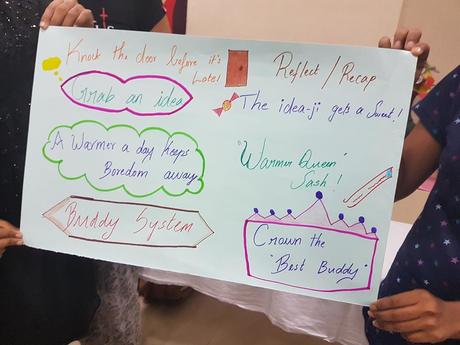 Knock the door before it's
Late!
Reflect / Recap
Grab an idea
The idea-ji gets a Sweet!
A Warmer a day keeps
Boredom away
"Warmer Queen"
Sash!
Buddy System
Crown the
"Best Buddy"